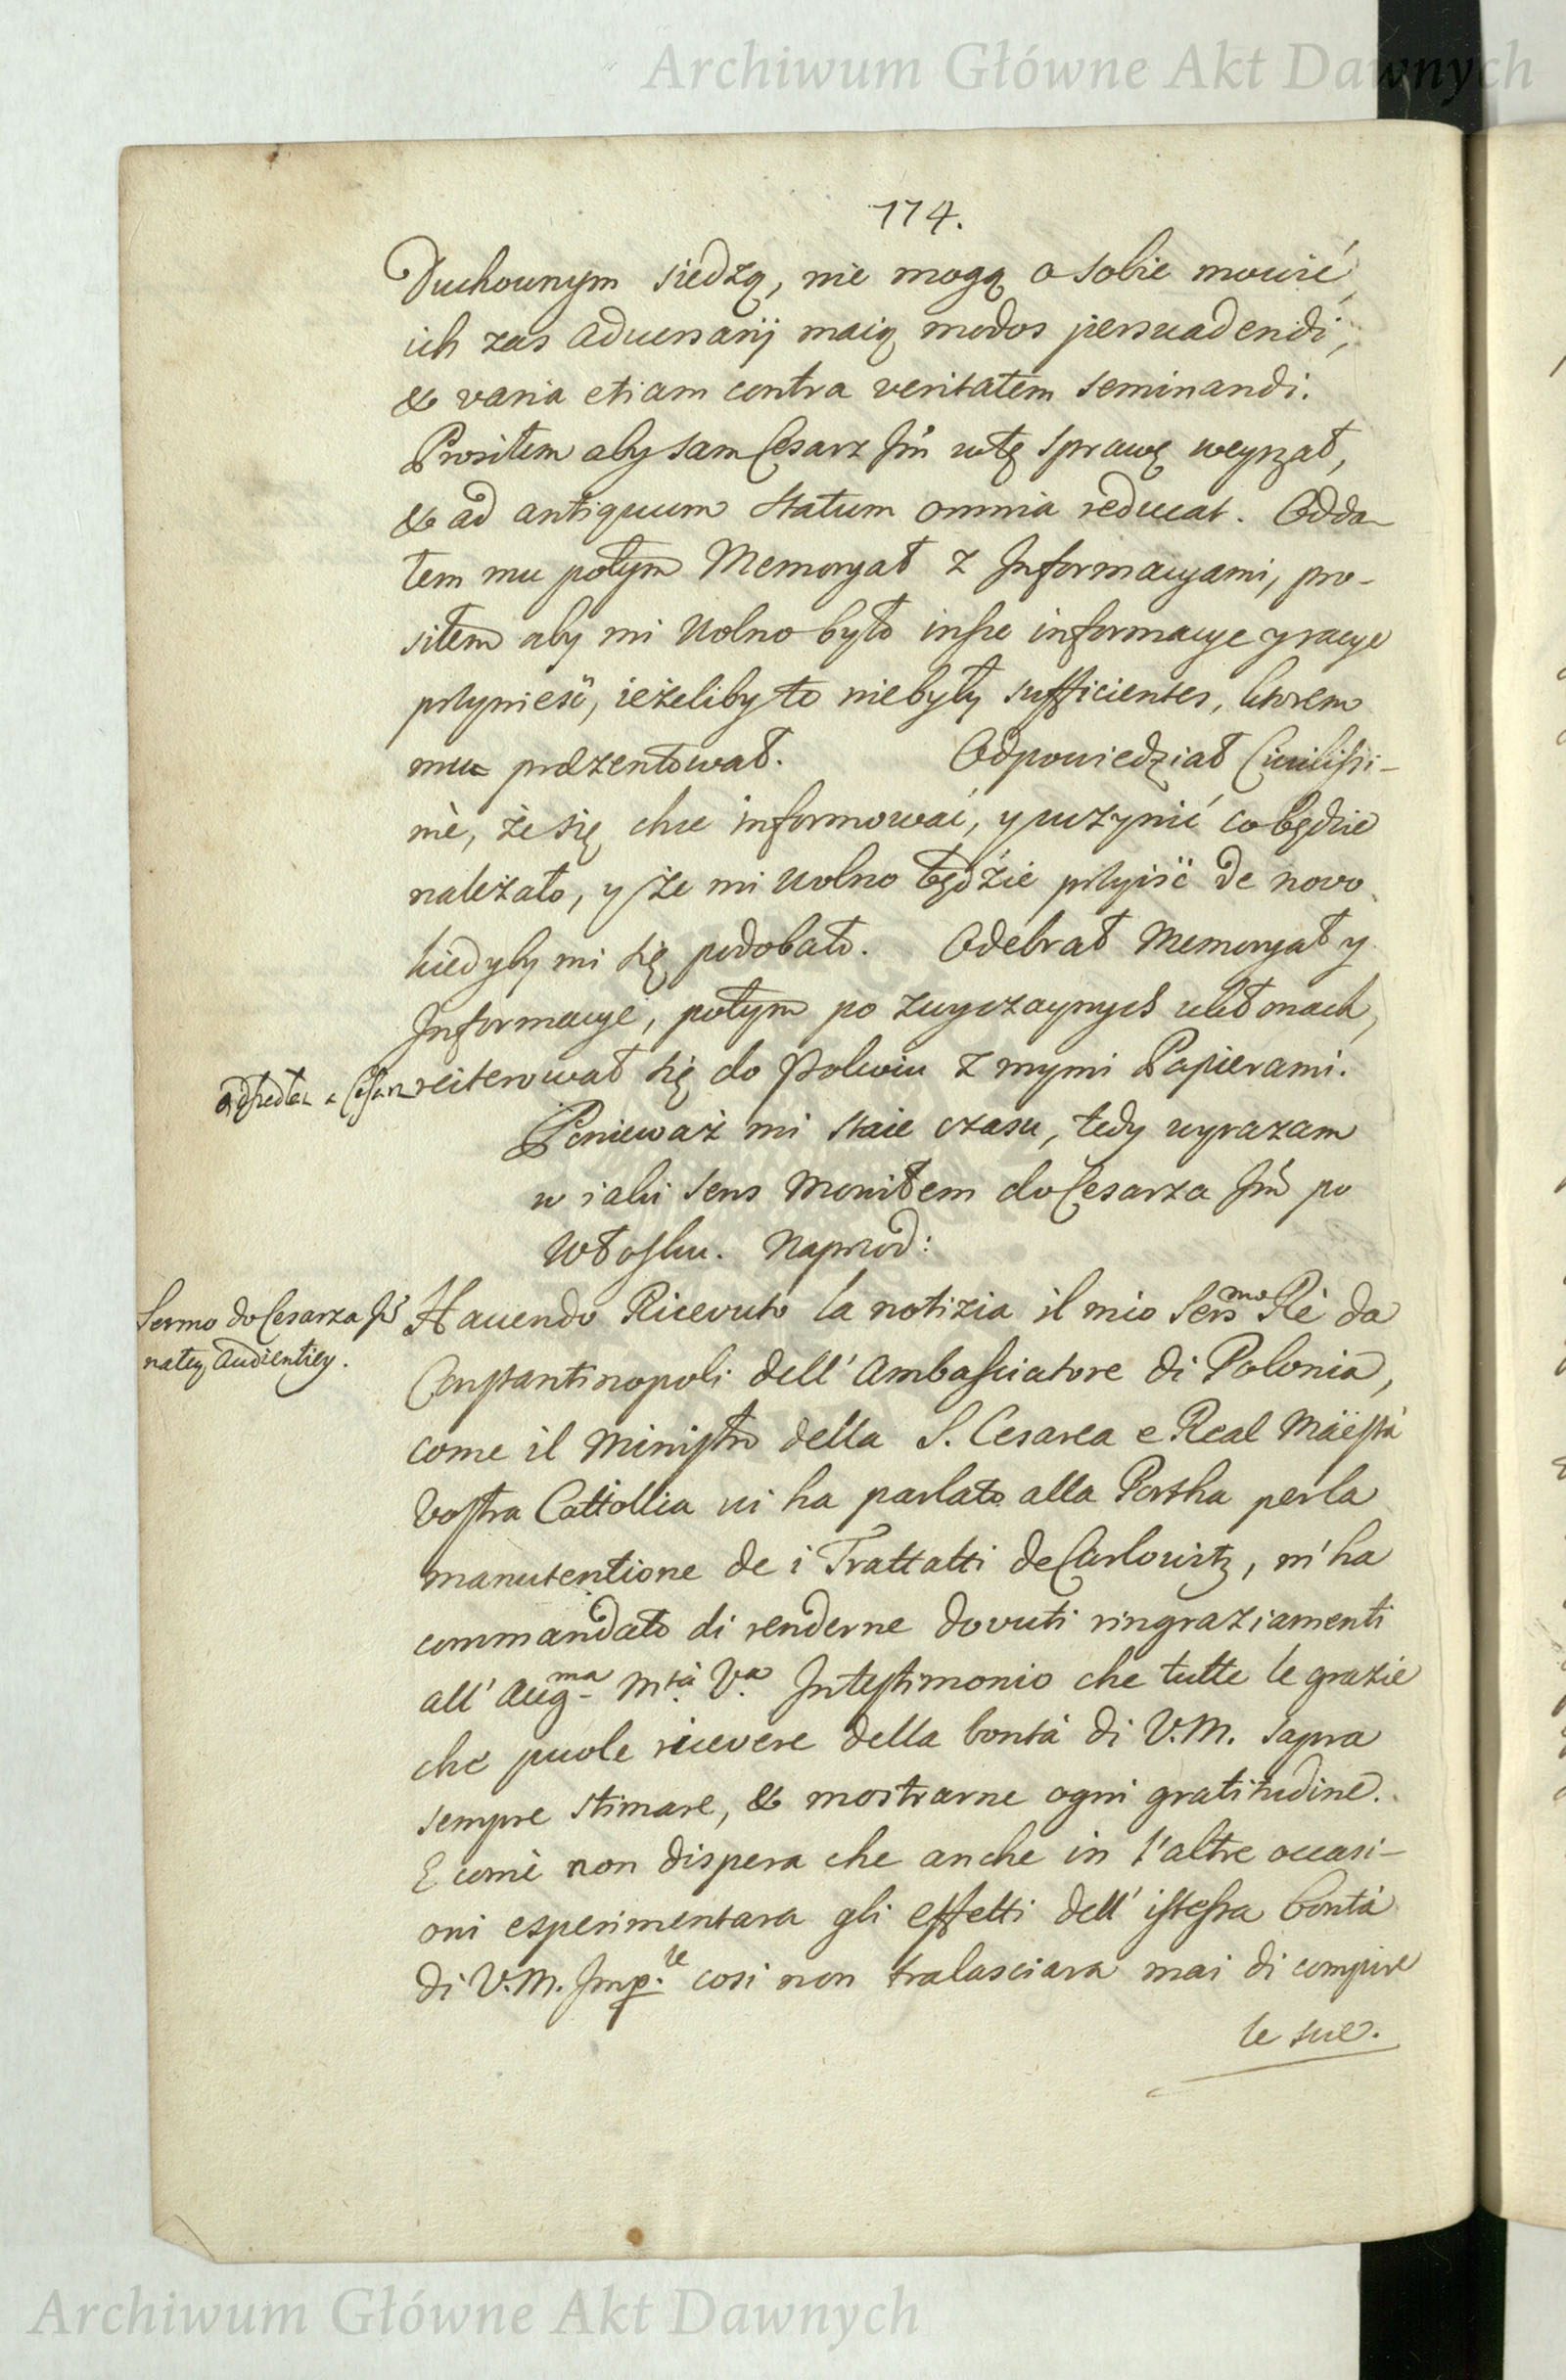 Archiwum Główne Akt Dawnych
174.
Duchownym siedzą, nie mogą o sobie mowić,
ich zas adversarij maią modos persuadendi,
& varia etiam contra veritatem seminandi.
Prosiłem aby sam Cesarz Jm̃ wtę sprawę weyrzał,
& ad antiquum statum omnia reducat. Odda-
łem mu potym Memoryał z Informacyami, pro-
siłem aby mi wolno było insze informacye y racye
przyniesć, ieżeliby to niebyły sufficientes, ktorem
mu prezentował. Odpowiedział Civilissi-
mè, że się chce informować, y uczynić co będzie
należało, y że mi wolno będzie przyisć de novo
kiedyby mi się podobało. Odebrał Memoryał y
Informacye, potym po zwyczaynych ukłonach,
reiterował się do Pokoiu z mymi Papierami.
Ponieważ mi staie czasu, tedy wyrazam
w iaki sens mowiłem do Cesarza Jm̃ po
Włosku. Naprzod:
Sermo do Cesarza Jm̃
natey Audientiey.
Havendo Ricevuto la notizia il mio Sers.mo Rè da
Constantinopoli dell' Ambasciatore di Polonia,
come il Ministro della S. Cesarea e Real Maestà
Vostra Cattollica vi ha parlato alla Portha per la
manutentione de i Trattatti de Carlowitz, m'ha
commandato di renderne dovuti ringraziamenti
all' Aug.ma M.tà V.a In testimonio che tutte le grazie
che puole ricevere della bontà di V.M. sapra
sempre stimare, & mostrarne ogni gratitudine.
E comè non dispera che anche in l'altre occasi-
oni esperimentara gli effetti dell' istessa bontà
di V.M. Imp.le cosi non tralasciara mai di compire
le sue.
Archiwum Główne Akt Dawnych